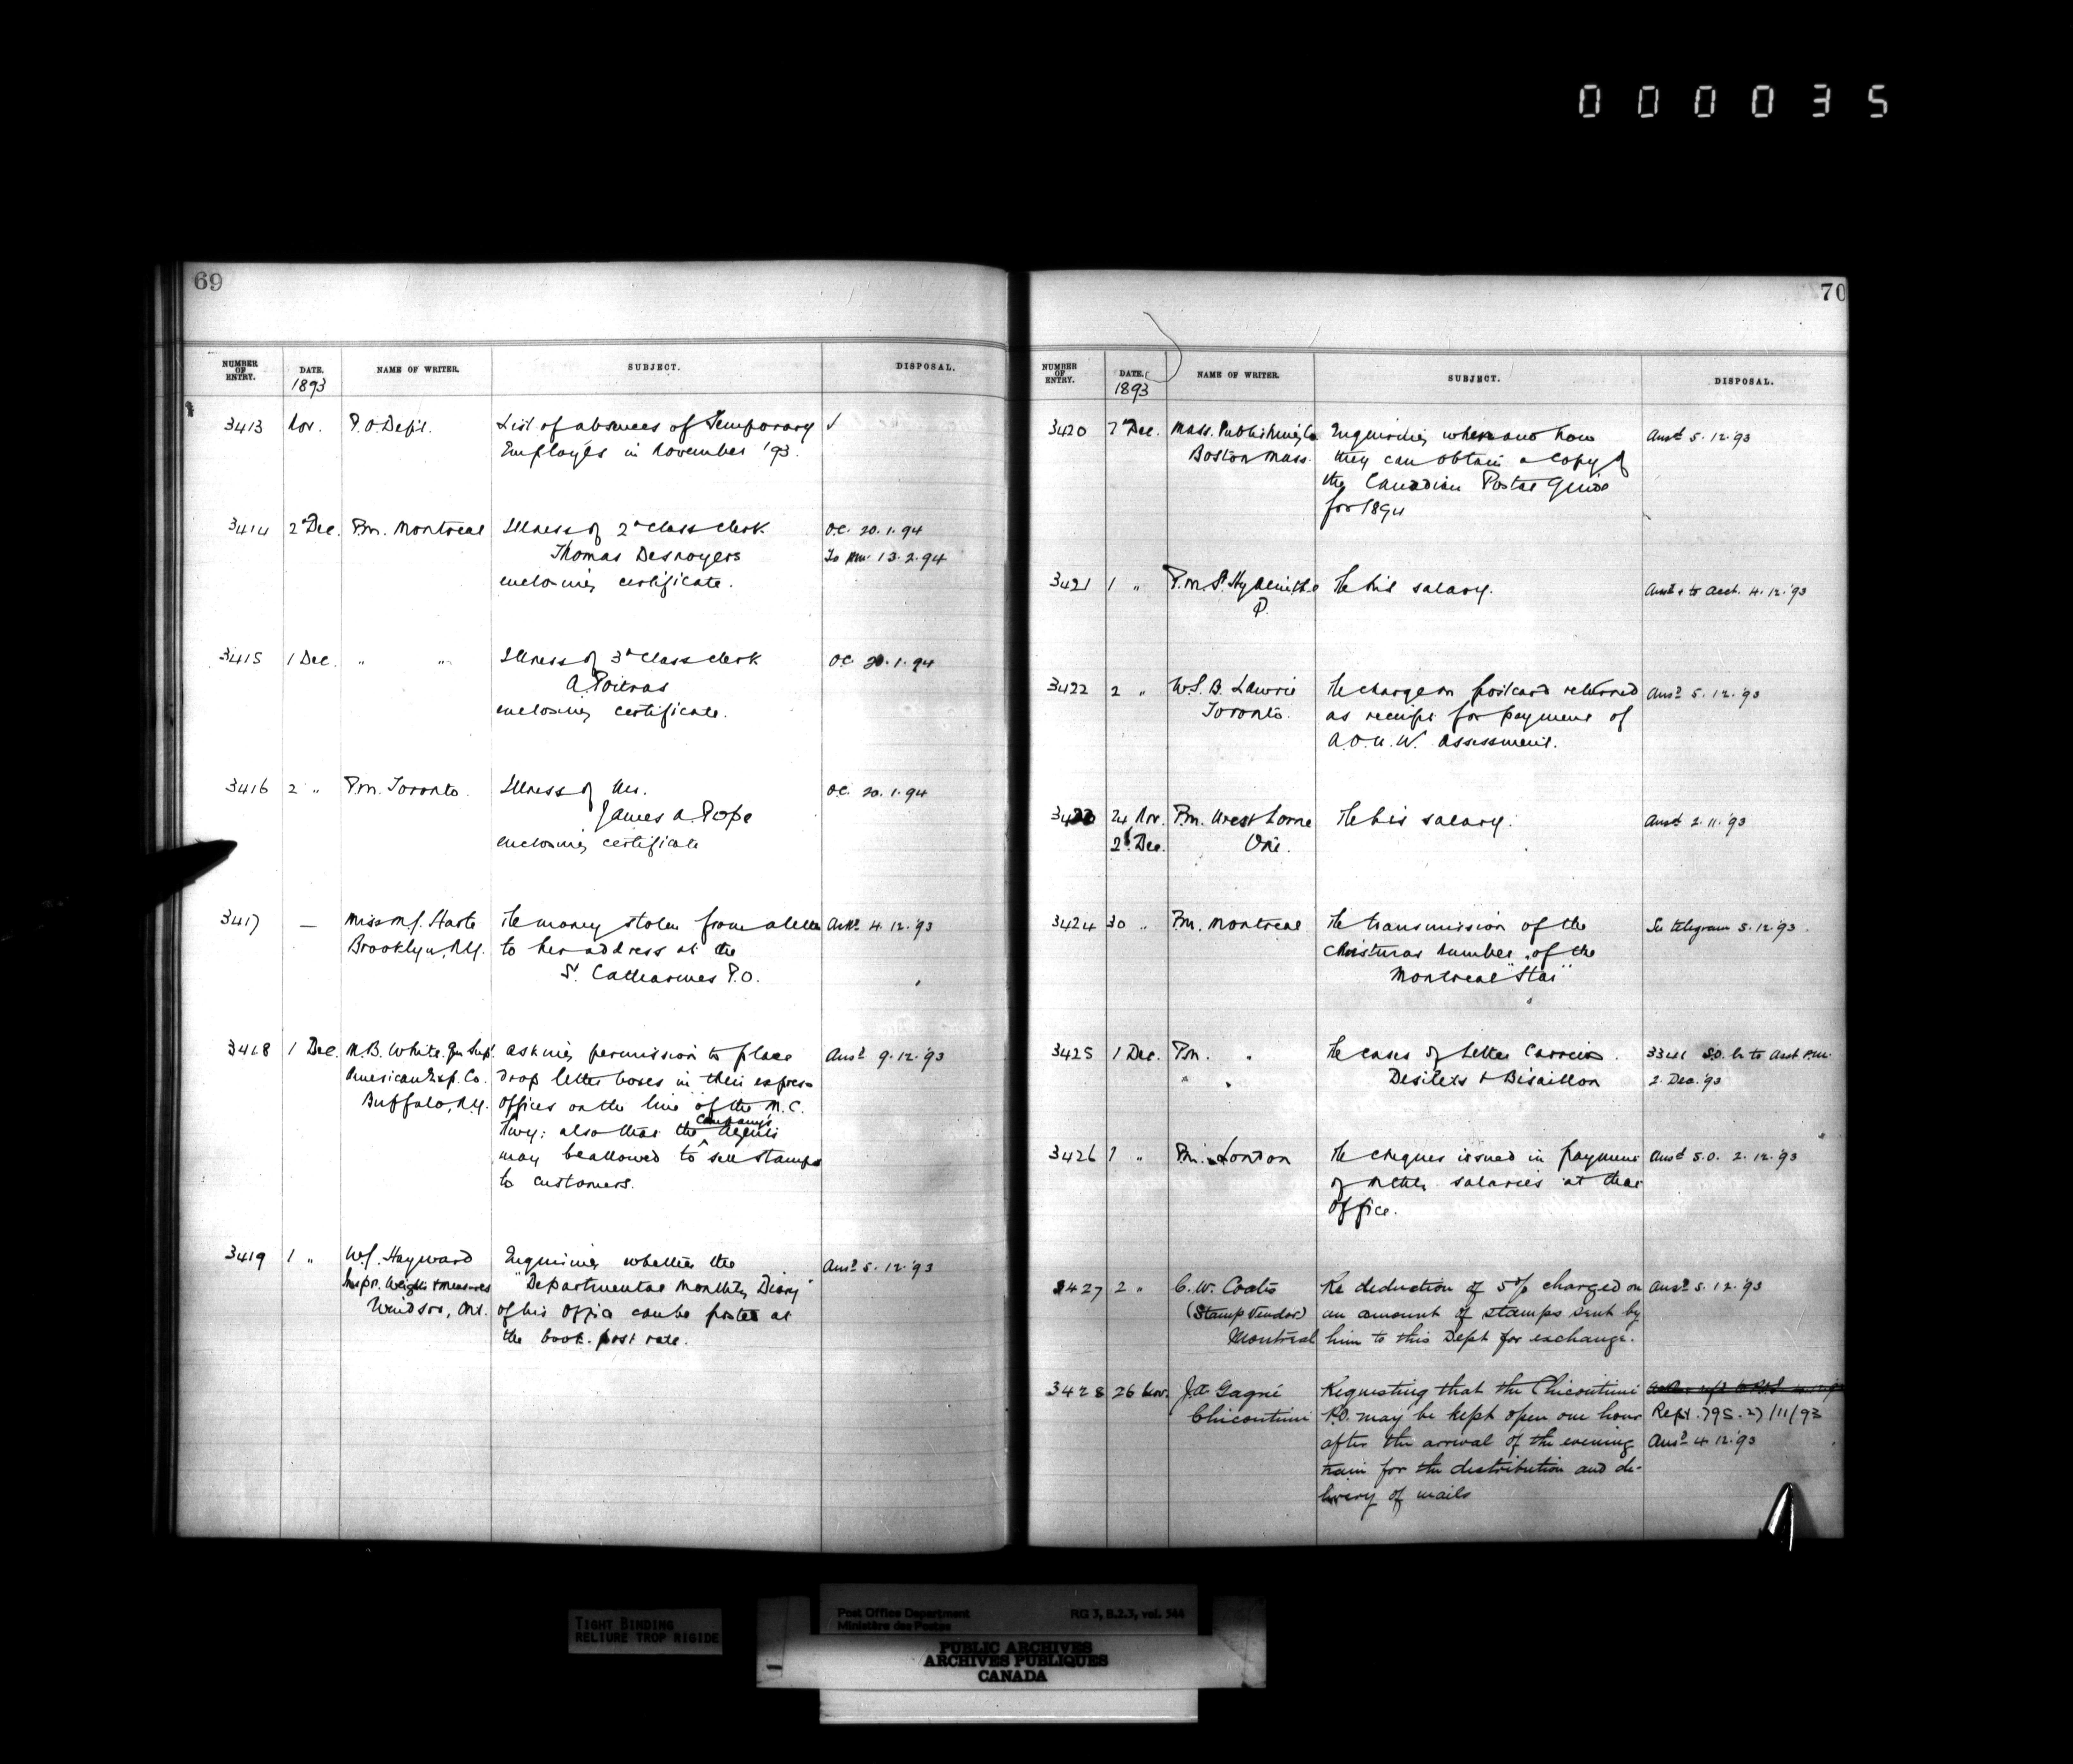 000035
69
NUMBER OF ENTRY. DATE. 1893 NAME OF WRITER. SUBJECT. DISPOSAL.
3413 Nov. P.O. Dept. List of absences of Temporary ✓
Employés in November '93.
3414 2 Dec. P.M. Montreal Illness of 2d Class Clerk O.C. 20.1.94
Thomas Desnoyers To 13.2.94
enclosing certificate.
3415 1 Dec. " " Illness of 3d Class Clerk O.C. 20.1.94
A. Poitras
enclosing certificate.
3416 2 " P.M. Toronto. Illness of Mr. O.C. 20.1.94
James A. Pope
enclosing certificate
3417 — Miss M.J. Harte Re money stolen from a letter Ansd. 4.12.'93
Brooklyn, N.Y. to her address at the
St. Catharines P.O.
3418 1 Dec. M.B. White. Gen Supt. asking permission to place Ansd. 9.12.'93
American Exp. Co. drop letter boxes in their express
Buffalo, N.Y. offices on the line of the M.C.
Company's
Rwy: also that the Agents
may be allowed to sell stamps
to customers.
3419 1 " W.J. Hayward Enquiring whether the Ansd. 5.12.'93
Inspr. Weights & Measures "Departmental Monthly Diary"
Windsor, Ont. of his Office can be posted at
the book-post rate.
70
NUMBER OF ENTRY. DATE. 1893 NAME OF WRITER. SUBJECT. DISPOSAL.
3420 Dec. Mass. Publishing Co Enquiring where and how Ansd. 5.12.'93
Boston Mass. they can obtain a copy of
the Canadian Postal Guide
for 1894
3421 1 " P.M. St. Hyacinthe Re his salary. Ansd. & to Acct. 4.12.'93
Q.
3422 2 " W.S.B. Lawrie Re charge on postcard returned Ansd. 5.12.'93
Toronto. as receipt for payment of
A.O.U.W. Assessment.
24 Nov. P.M. West Lorne Re his salary. Ansd. 2.11.'93
2 Dec. Ont.
3424 30 " P.M. Montreal Re transmission of the See telegram 5.12.'93.
Christmas Number of the
Montreal "Star"
3425 1 Dec. P.M. " Re cases of Letter Carriers S.O. to Asst P.M.
" " Desilets & Bisaillon 2. Dec. '93
3426 1 " P.M. London Re cheques issued in payment Ansd S.O. 2.12.'93
of salaries at that
Office.
3427 2 " C.W. Coates Re deduction of 5% charged on Ansd. 5.12.'93
(Stamp Vendor) an amount of stamps sent by
Montreal him to this Dept for exchange.
3428 26 Nov. J.A. Gagné Requesting that the Chicoutimi
Chicoutimi P.O. may be kept open one hour Rept. 795. 27/11/93
after the arrival of the evening Ansd. 4.12.'93
train for the distribution and de-
livery of mails
TIGHT BINDING
RELIURE TROP RIGIDE
Post Office Department RG 3, B.2.3, vol. 544
Ministère des Postes
PUBLIC ARCHIVES
ARCHIVES PUBLIQUES
CANADA